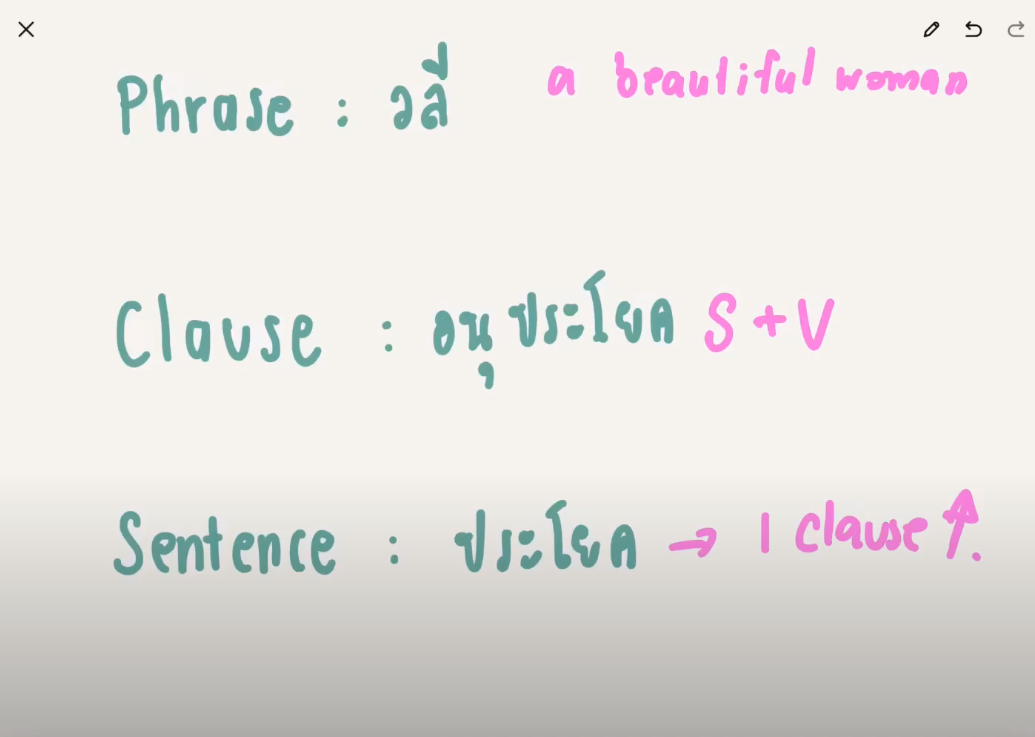 Phrase : วลี a beautiful woman
Clause : อนุประโยค S + V
Sentence : ประโยค → 1 clause ↑.